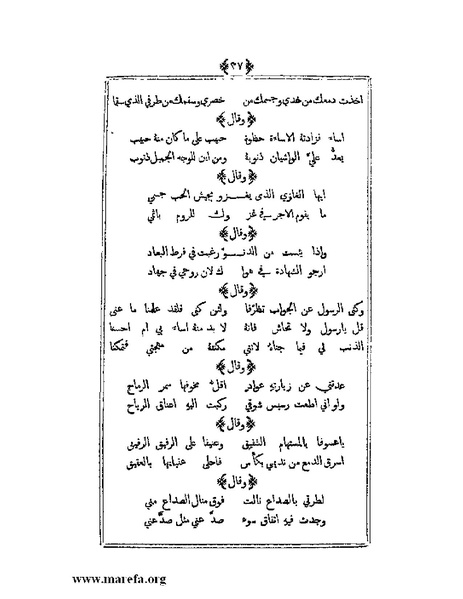 ﴿٣٧﴾
اخذت دمعك من خدي وجسمك من خصري وسقمك من طرفي الذي سقما
﴿وقال﴾
اساء فزادته الاساءة حظوة حبيب على ما كان منه حبيب
يعدُّ عليَّ الواشيان ذنوبة ومن اين للوجه الجميل ذنوب
﴿وقال﴾
ايها الغازي الذي يغزو بجيش الحب جسمي
ما يقوم الاجر في غز وك للروم باثمي
﴿وقال﴾
واذا يئست من الدنو رغبت في فرط البعاد
ارجو الشهادة في هوا ك لان روحي في جهاد
﴿وقال﴾
وكنى الرسول عن الجواب تظرّفا ولئن كنى فلقد علمنا ما عنى
قل يارسول ولا تحاش فانة لا بد منة اساء بي ام احسنا
الذنب لي فيما جناهُ لانني مكنتة من مهجتي فتمكنا
﴿وقال﴾
عدتني عن زيارته عوادٍ اقلّ مخوفها سمر الرماح
ولو اني اطعت رسيس شوقي ركبت اليهِ اعناق الرياح
﴿وقال﴾
ياعسوفا بالمستهام الشفيق وعنيفا على الرفيق الرفيق
اسرق الدمع من نديمي بكأس فاحلى عقيانها بالعقيق
﴿وقال﴾
لطرتي بالصداع نالت فوق منال الصداع مني
وجدت فيهِ اتفاق سوء صدَّعني مثل صدَّ عني
www.marefa.org